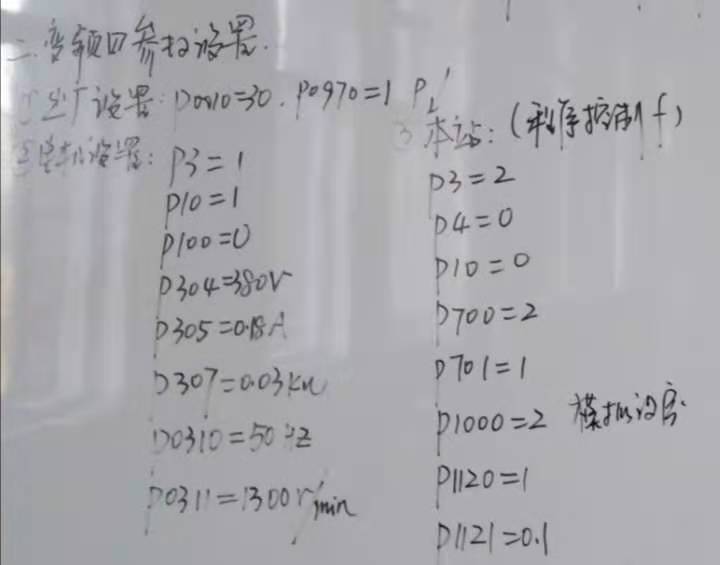 二.变频口参数设置.
①出厂设置:P0010=30. P0970=1 P
②电机设置: P3=1
P10=1
P100=0
P304=380V
P305=0.18A
P307=0.03kw
P0310=50Hz
P0311=1300r/min
③ 本站:(程序控制f)
P3=2
P4=0
P10=0
P700=2
P701=1
P1000=2 模拟设定
P1120=1
P1121=0.1